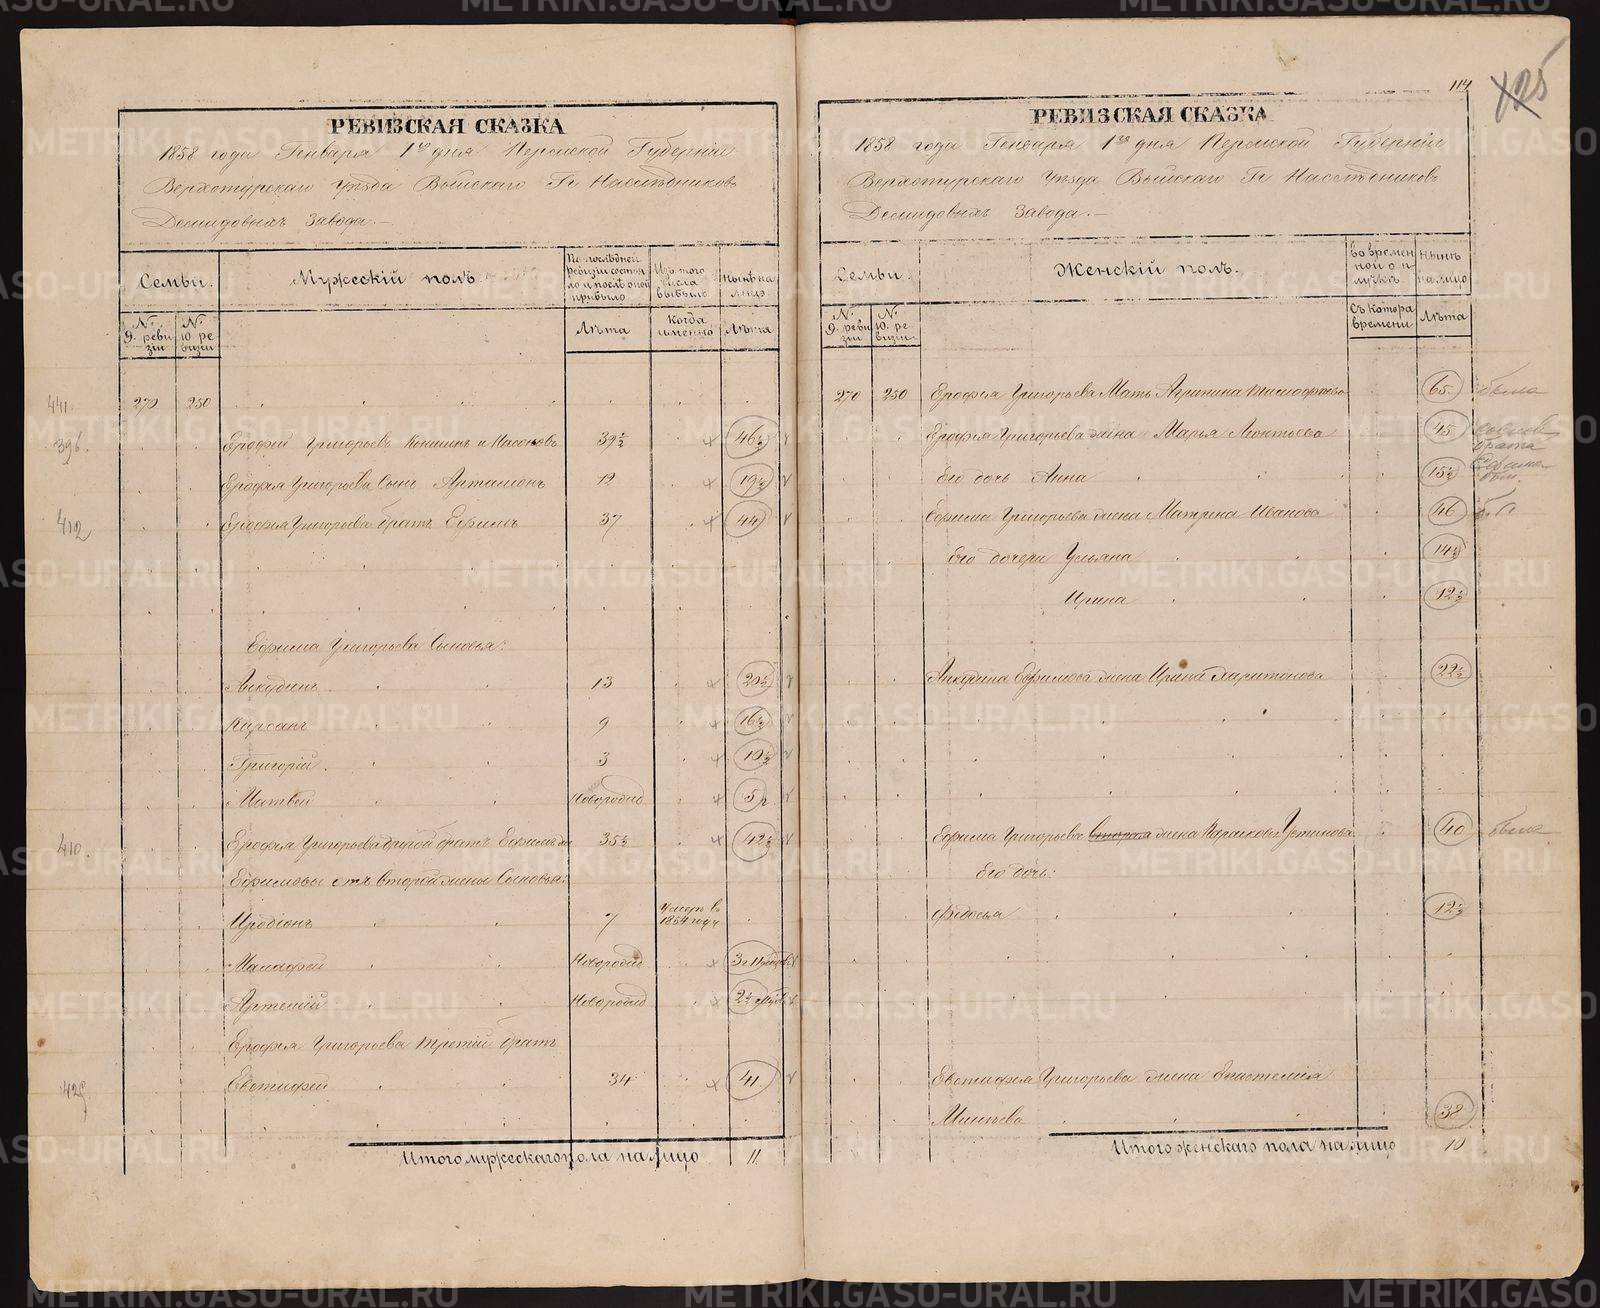 114
125
РЕВИЗСКАЯ СКАЗКА
1858 года Генваря 1го дня Пермской Губерніи
Верхотурскаго Уѣзда Выйскаго Гг Наслѣдниковъ
Демидовыхъ Завода.—
Семьи.
Мужескій полъ.
По послѣдней ревизіи состояло и послѣ оной прибыло.
Изъ того числа выбыло
Нынѣ на лицо
№ 9. ревизіи
№ 10 ревизіи
Лѣта
Когда именно
Лѣта
441.
270 250
396. Ерофей Григорьевъ Коншинъ и Насоновъ 39½ 46½
Ерофея Григорьева Сынъ Артамонъ 12 19½
412 Ерофея Григорьева братъ Ефимъ 37 44
Ефима Григорьева Сыновья:
Анкудинъ 13 20½
Кирсанъ 9 16½
Григорій 3 10½
Матвей Новорожд 5 г
410. Ерофея Григорьева другой братъ Ефимъ 35½ 42½
Ефимовы отъ второй жены Сыновья:
Иродіонъ 7 Умеръ въ 1854 году
Малафей Новорожд
Артемій Новорожд
Ерофея Григорьева третій братъ
Евтифей 34 41
Итого мужескаго пола на лицо 11
РЕВИЗСКАЯ СКАЗКА
1858 года Генваря 1го дня Пермской Губерніи
Верхотурскаго Уѣзда Выйскаго Гг Наслѣдниковъ
Демидовыхъ Завода.—
Семьи
Женскій полъ.
Во временной отлучкѣ
Нынѣ на лицо
№ 9. ревизіи
№ 10. ревизіи
Съ котора времени
Лѣта
270 250 Ерофея Григорьева Мать Агрипина Тимофѣева 65
Ерофея Григорьева жена Марья Леонтьева 45
Его дочь Анна 15½
Ефима Григорьева жена Матрена Иванова 46
Его дочери Ульяна 14½
Ирина 12½
Анкудина Ефимова жена Ирина Харитонова 22½
Ефима Григорьева Вторая жена Парасковья Устинова 40
Его дочь:
Федосья 12½
Евтифея Григорьева жена Епистемія
Минѣева 38
Итого женскаго пола на лицо 10
METRIKI.GASO-URAL.RU